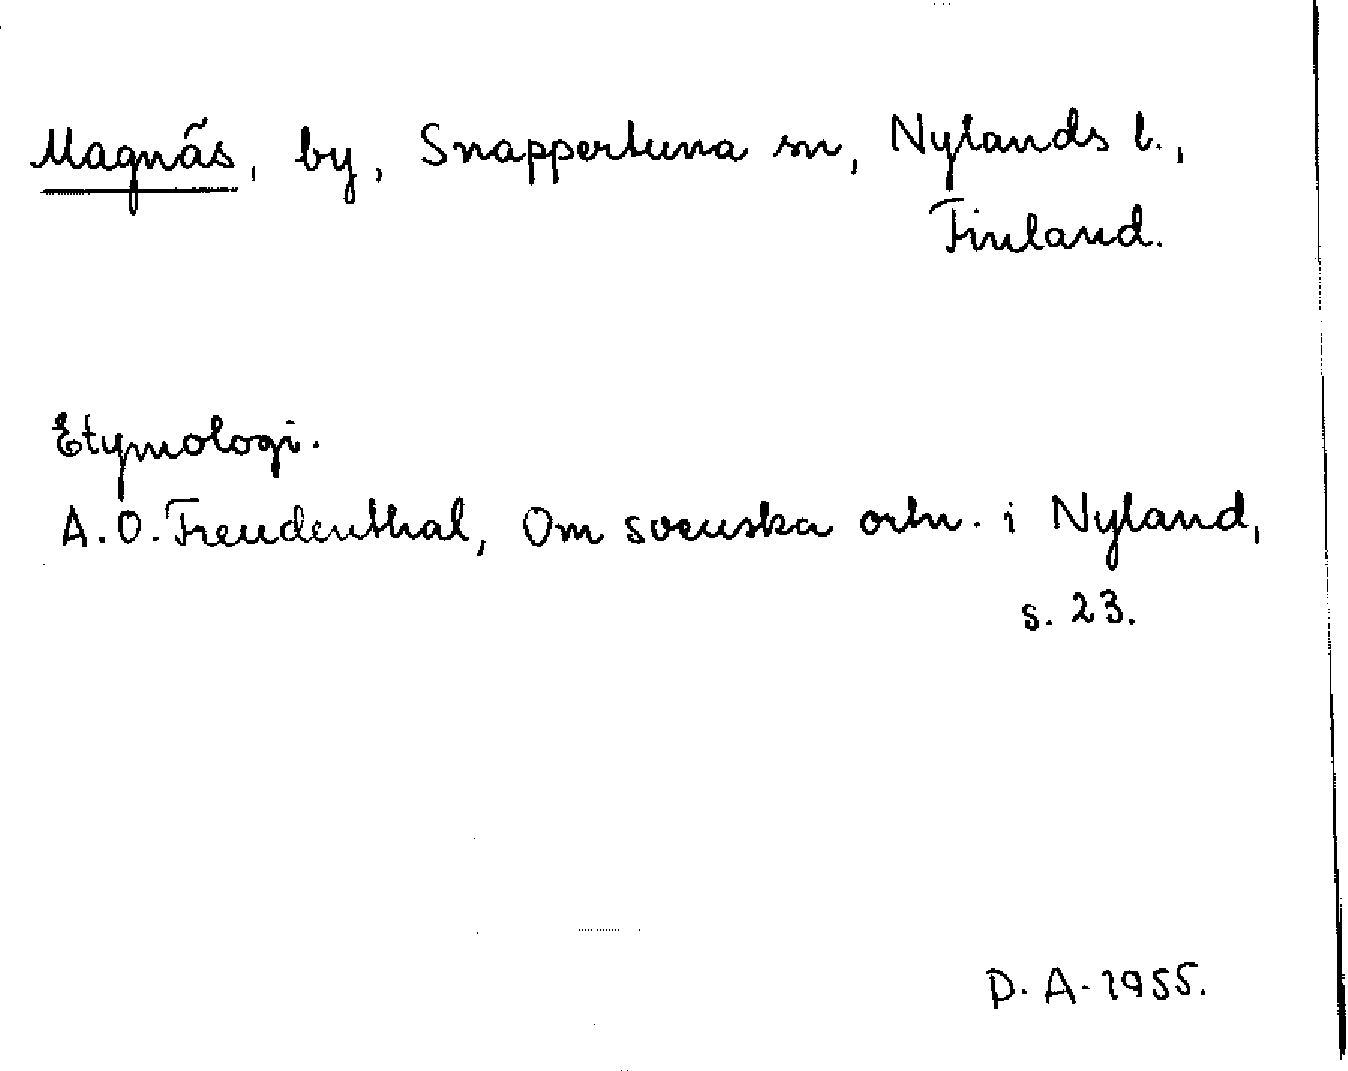 Magnäs, by, Snappertuna sn, Nylands l.,
Finland.
Etymologi.
A. O. Freudenthal, Om svenska ortn. i Nyland,
s. 23.
D. A. 1955.